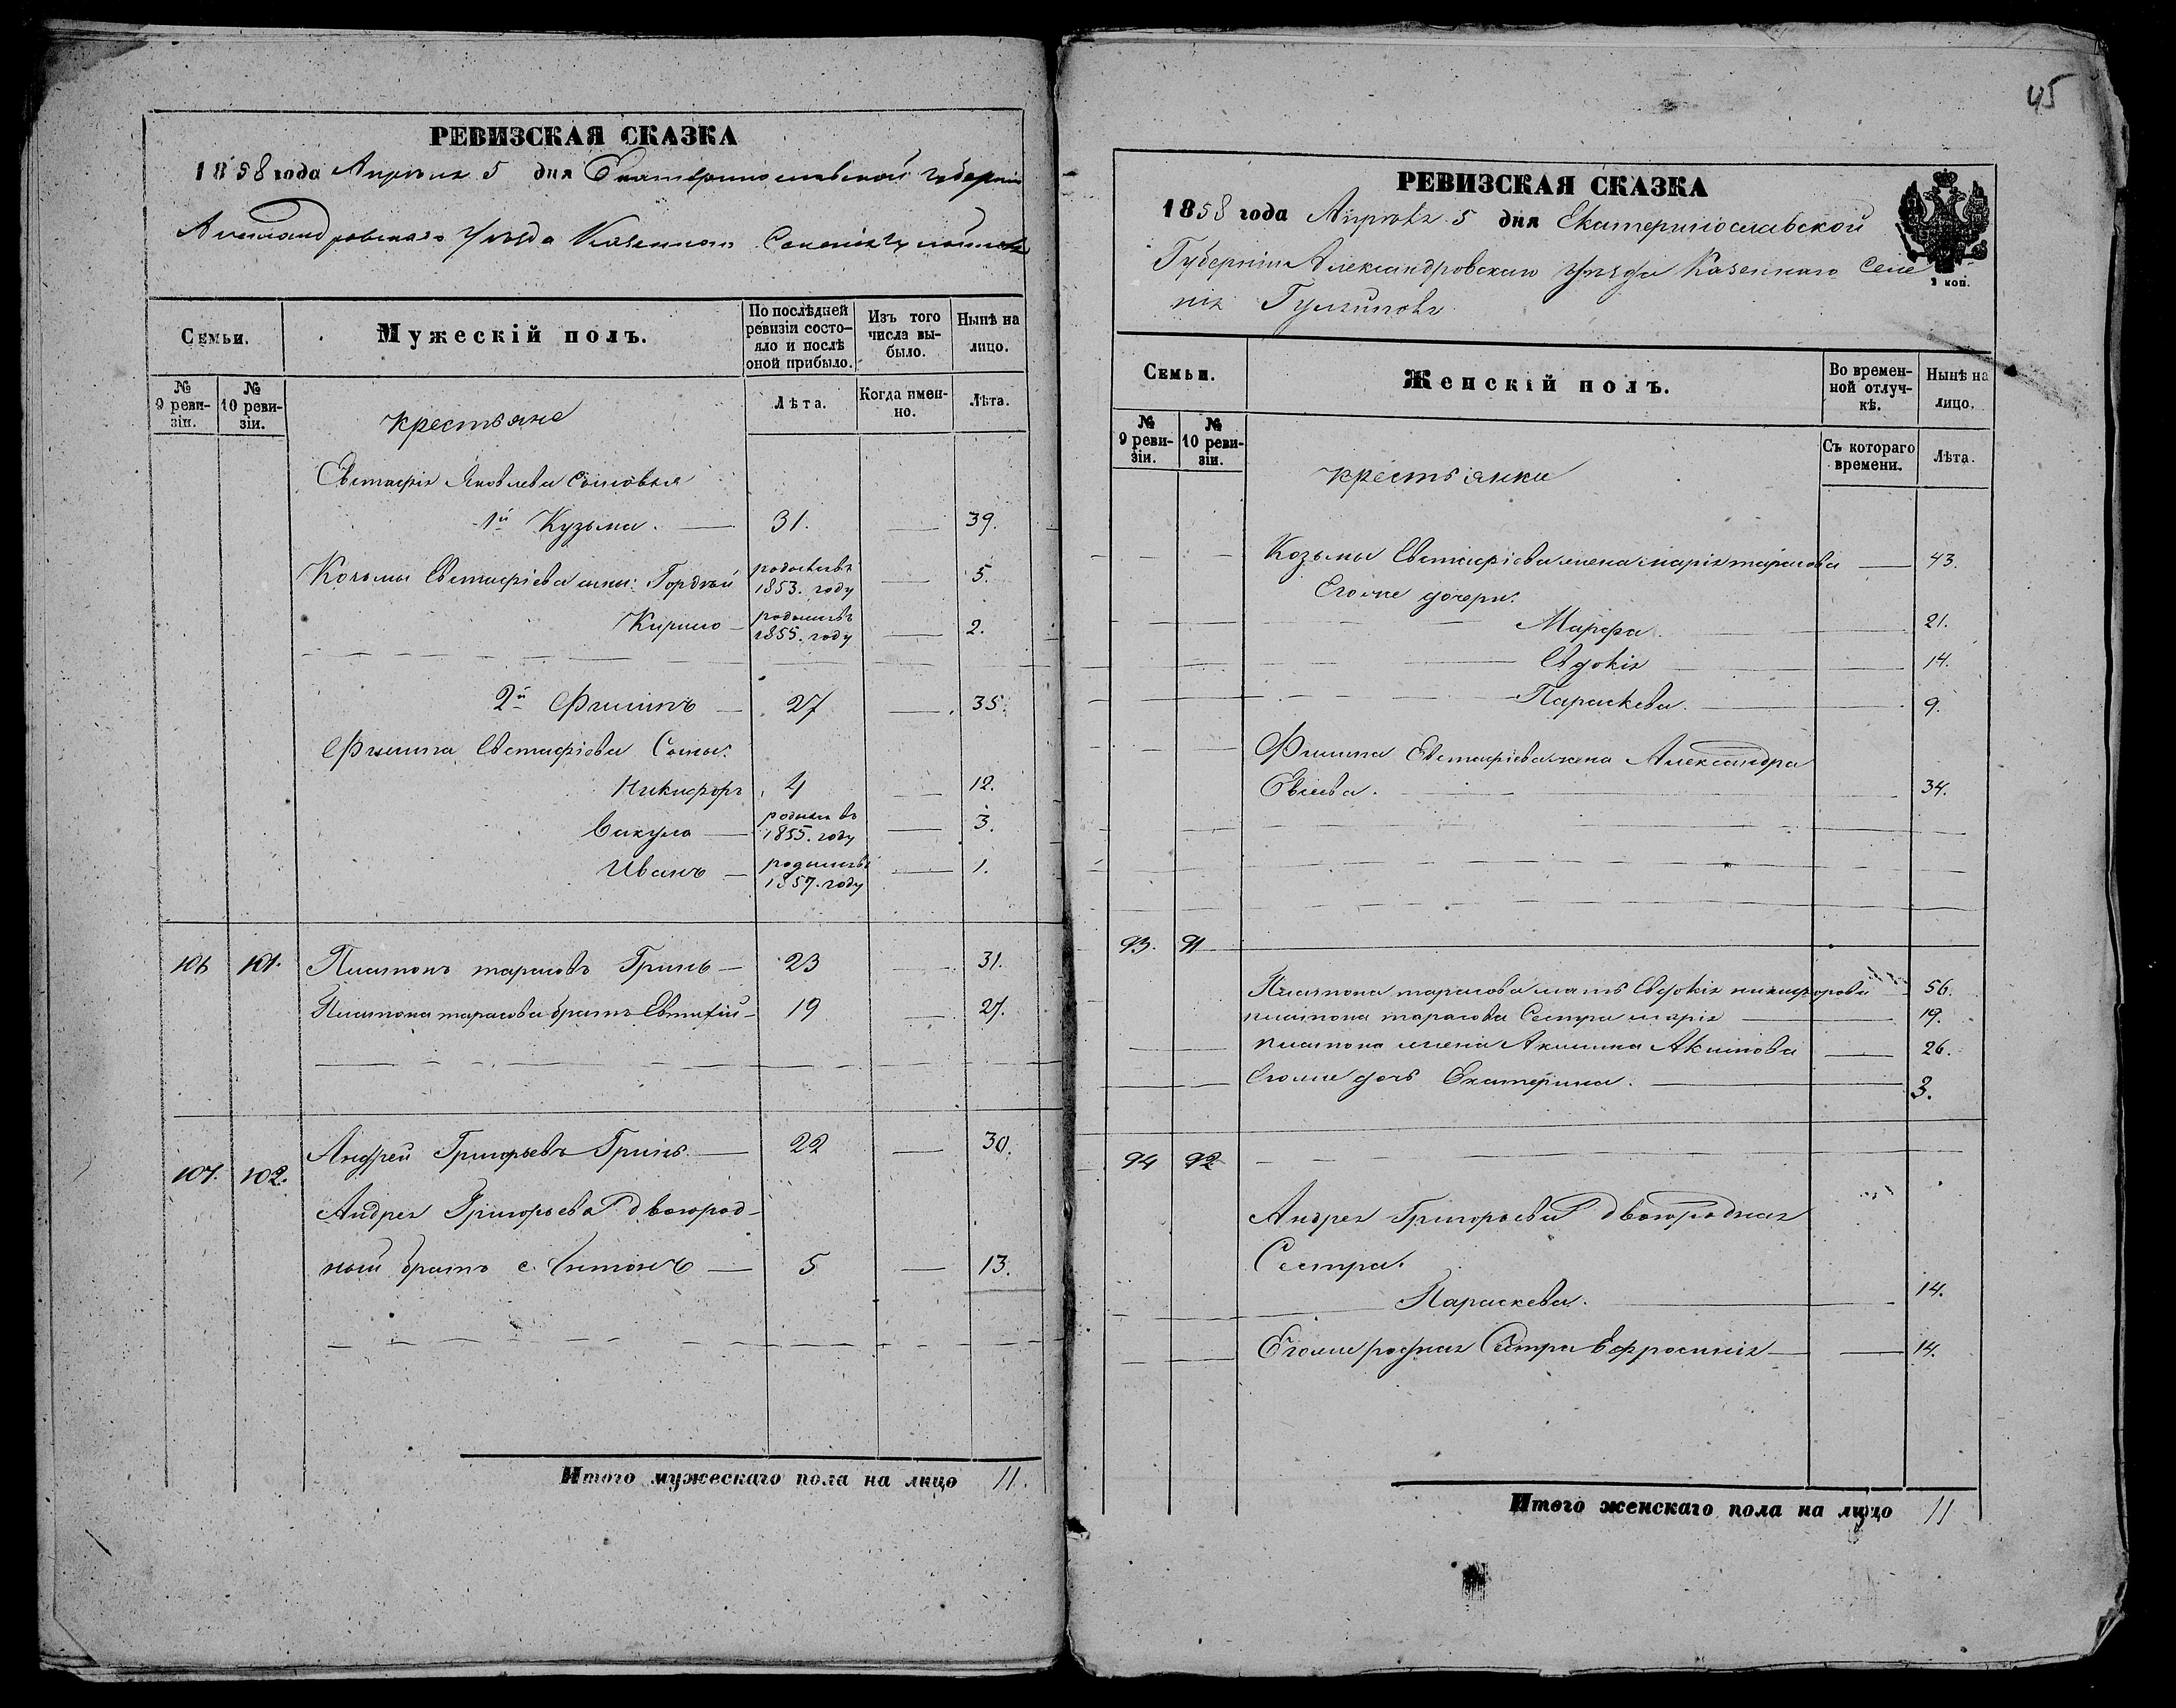 РЕВИЗСКАЯ СКАЗКА
1858 года Апреля 5 дня Екатеринославской губернии
Александровскаго уезда Казеннаго Селения Гуляйполя
Семьи.
Мужескій полъ.
По послѣдней ревизіи состояло и послѣ оной прибыло.
Изъ того числа выбыло.
Нынѣ на лицо.
№ 9 ревизіи.
№ 10 ревизіи.
крестьяне
Лѣта.
Когда именно.
Лѣта.
Евстафія Яковлева сыновья
1й Кузьма. 31. 39.
Козьмы Евстафіева сыны: Гордѣй родился въ 1853. году 5.
Кирило родился въ 1855. году 2.
2й Филипъ 27 35.
Филипа Евстафіева Сыны:
Никифоръ 4 12.
Вакула родился въ 1855. году 3.
Иванъ родился въ 1857. году 1.
106 101. Платонъ тарасовъ Гринь 23 31.
Платона тарасова братъ Евтихій 19 27.
107. 102. Андрей Григорьевъ Гринь 22 30.
Андрея Григорьева двоюрод-
ный братъ с. Антонъ 5 13.
Итого мужескаго пола на лицо 11.
45
РЕВИЗСКАЯ СКАЗКА
1858 года Апреля 5 дня Екатеринославской
Губерніи Александровскаго уезда Казеннаго Селе
нія Гуляйполя
3 коп.
Семьи.
Женскій полъ.
Во временной отлучкѣ.
Нынѣ на лицо.
№ 9 ревизіи.
№ 10 ревизіи.
крестьянки
Съ котораго времени.
Лѣта.
Козьмы Евстафіева жена марія тарасова 43.
Егоже дочери.
Марфа. 21.
Евдокія 14.
Параскева. 9.
Филипа Евстафіева жена Александра
34.
93. 91
Платона тарасова мать Евдокія никифорова 56.
платона тарасова Сестра марія 19.
платона жена Акилина Акимова 26.
Егоже дочь Екатерина. 3.
94 92
Андрея Григорьева двоюродная
Сестра.
Параскева. 14.
Егоже родная Сестра Ефросинія 14.
Итого женскаго пола на лицо 11